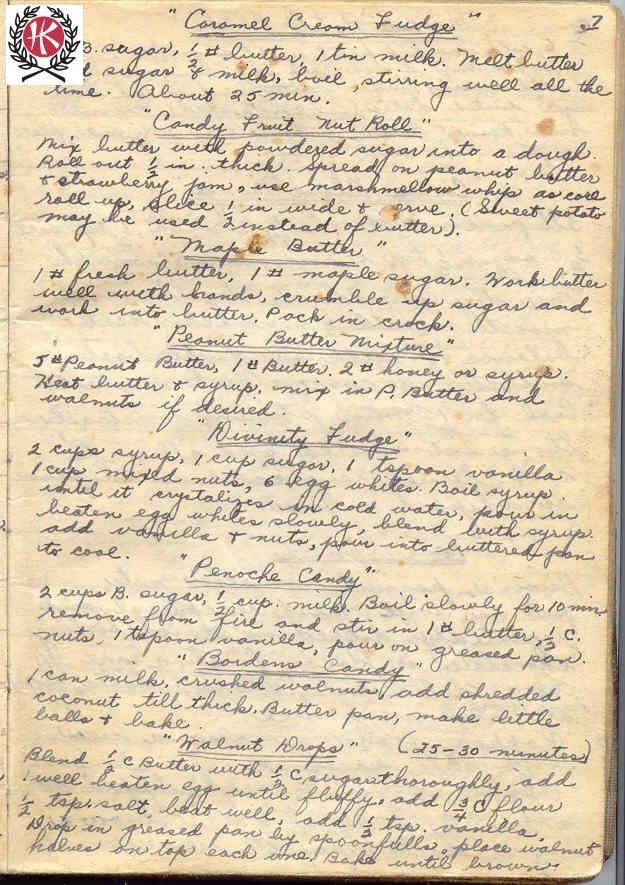 "Caramel Cream Fudge" 7
HK
B. sugar, 1/2 # butter, 1 tin milk. Melt butter
sugar & milk, boil, stirring well all the
time. About 25 min.
"Candy Fruit Nut Roll"
Mix butter with powdered sugar into a dough.
Roll out 1/2 in. thick. Spread on peanut butter
& strawberry jam, use marshmellow whip as core
roll up, slice 1/2 in wide & erve. (Sweet potato
may be used instead of butter).
"Maple Butter"
1 # fresh butter, 1 # maple sugar. Work butter
well with hands, crumble up sugar and
work into butter. Pack in crock.
"Peanut Butter Mixture"
5 # Peanut Butter, 1 # Butter. 2 # honey or syrup.
Heat butter & syrup, mix in P. Butter and
walnuts if desired.
"Divinity Fudge"
2 cups syrup, 1 cup sugar, 1 tspoon vanilla
1 cup mixed nuts, 6 egg whites. Boil syrup
until it crystalizes in cold water, pour in
beaten egg whites slowly, blend with syrup.
add vanilla & nuts, pour into buttered pan
to cool.
"Penoche Candy"
2 cups B. sugar, 1/2 cup. milk. Boil slowly for 10 min.
remove from fire and stir in 1 # butter, 1/2 C.
nuts, 1 tspoon vanilla, pour on greased pan.
"Bordens Candy"
1 can milk, crushed walnuts, add shredded
coconut till thick. Butter pan, make little
balls & bake.
"Walnut Drops" (25-30 minutes)
Blend 1/2 C Butter with 1/2 C sugar thoroughly, add
1 well beaten egg until fluffy, add 3/4 C flour
1/2 tsp. salt, beat well, add 1/2 tsp. vanilla,
Drop in greased pan by spoonfulls, place walnut
halves on top each one. Bake until brown.